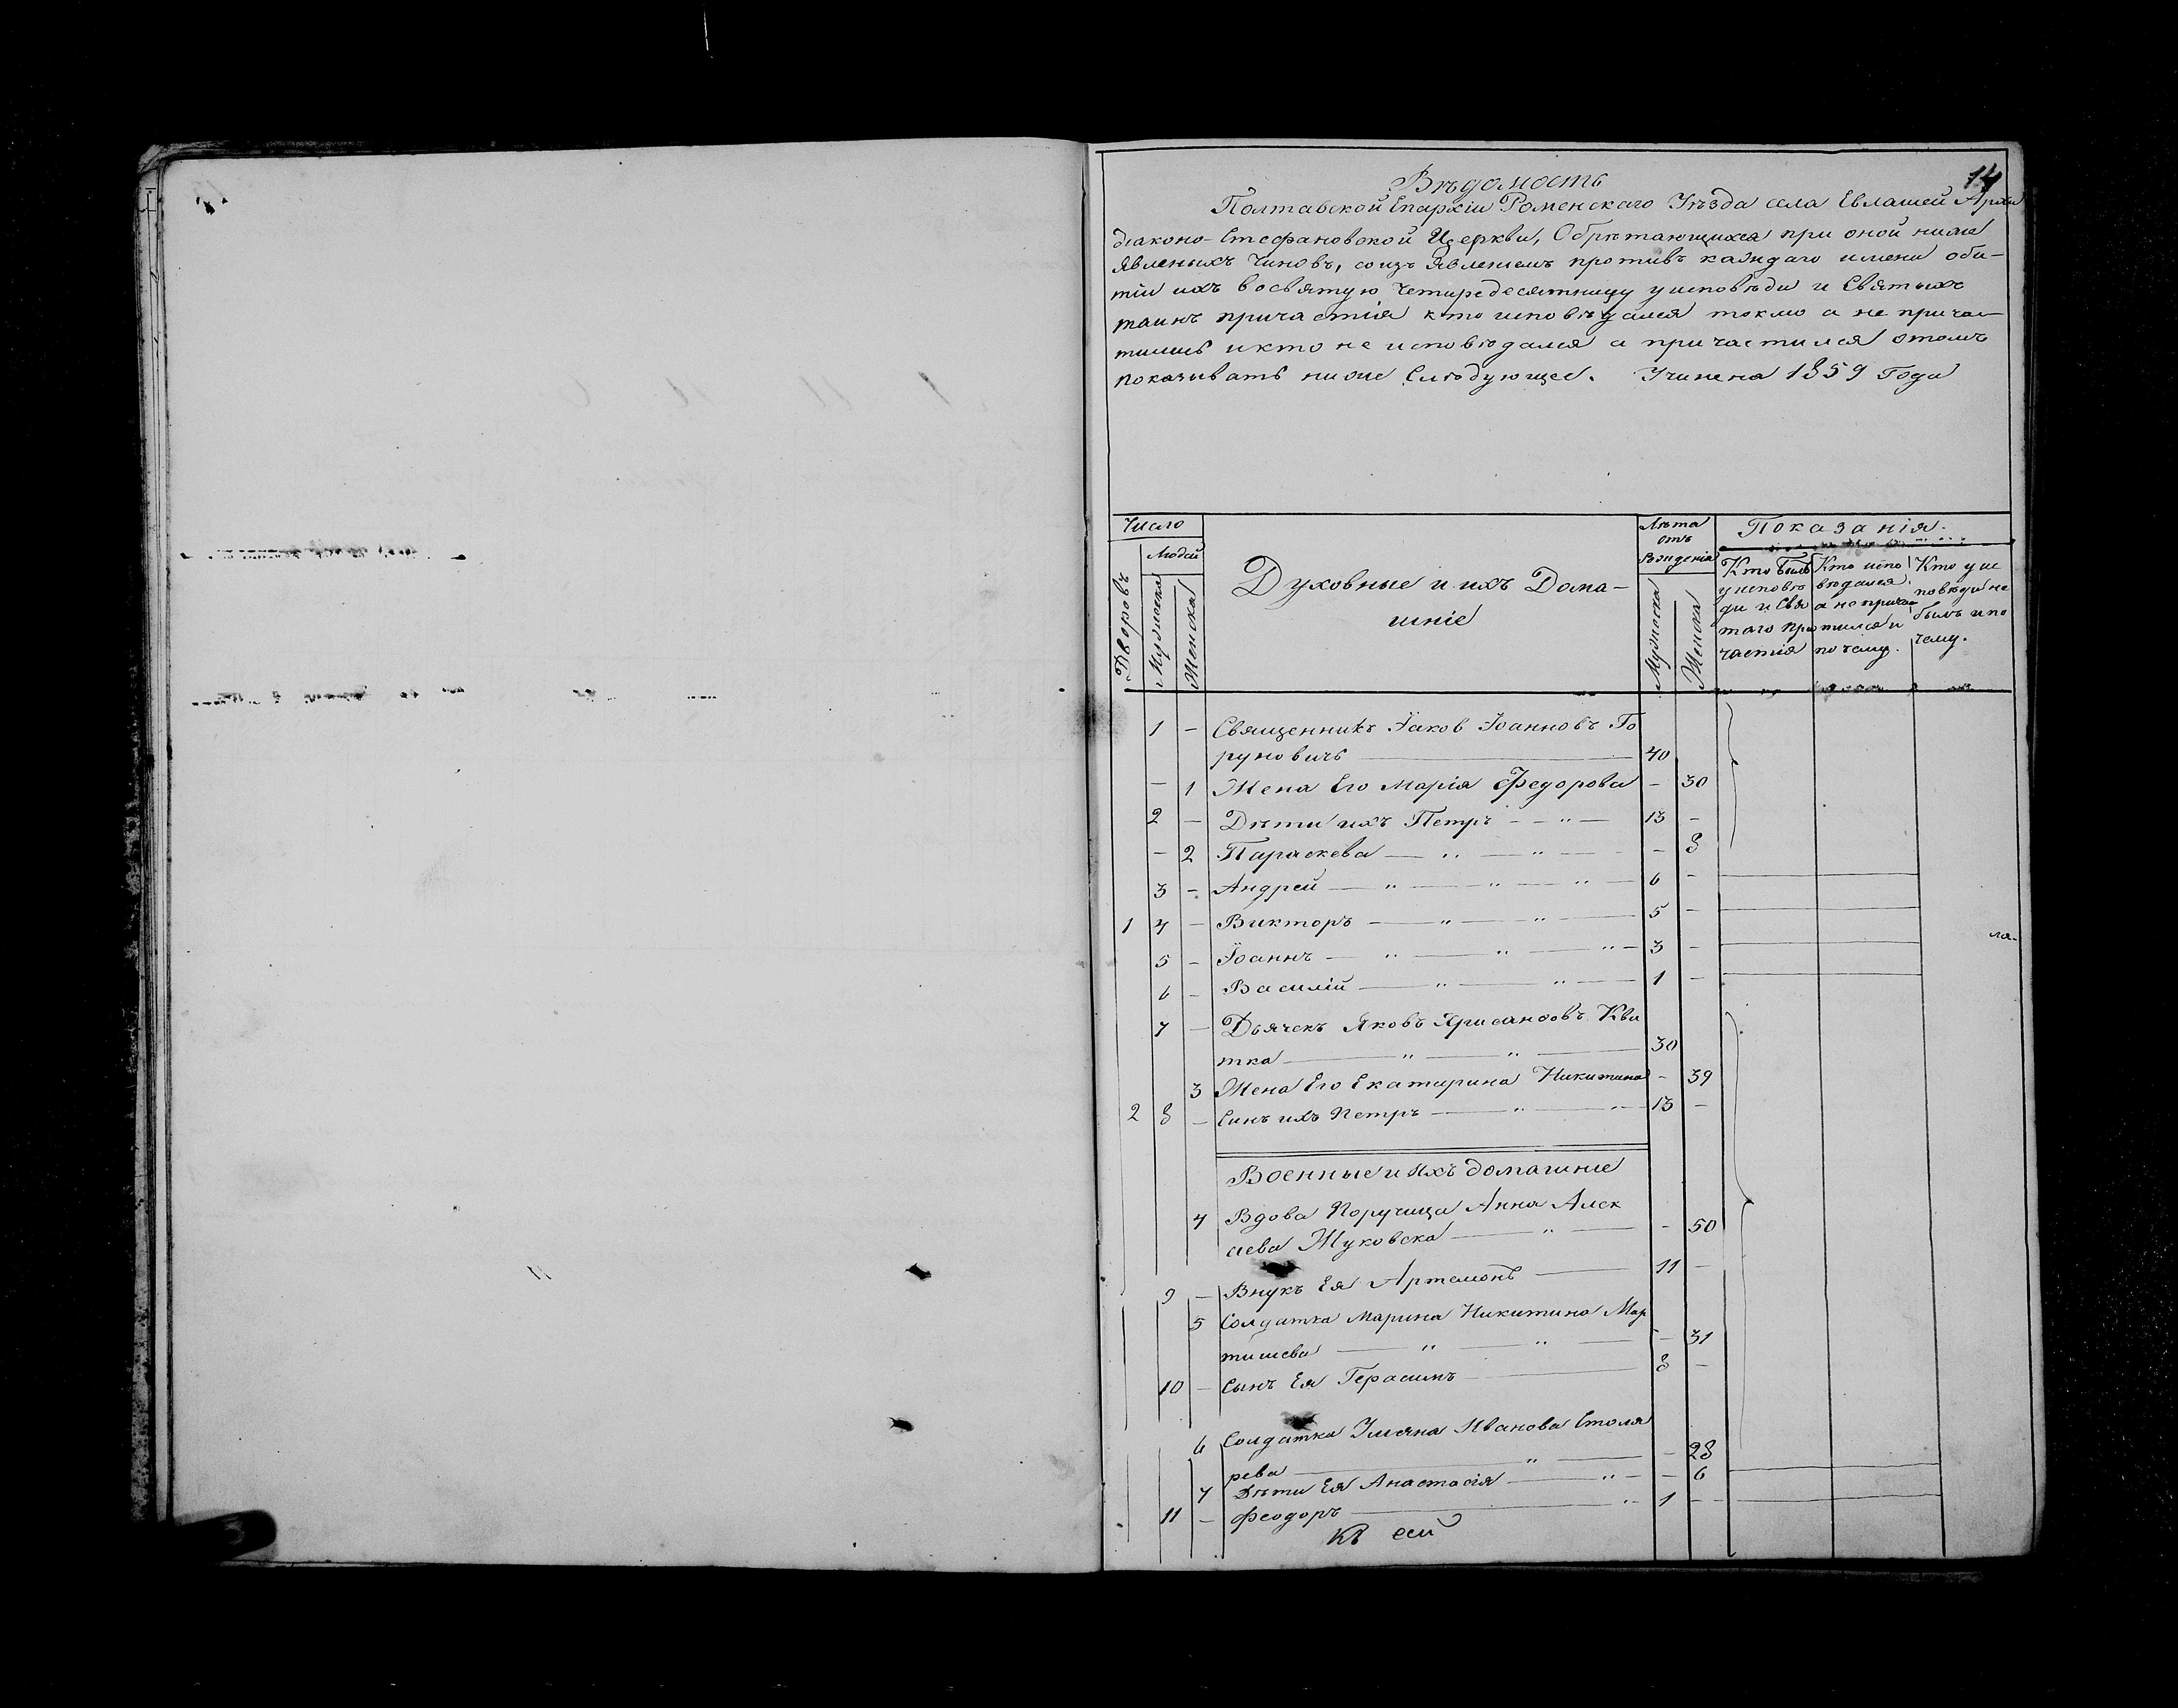 14
Вѣдомость
Полтавской Епархіи Роменскаго Уѣзда села Евлашей Архи
діаконо-Стефановской Церкви, Обрѣтающихся при оной ниже
явленыхъ Чиновъ, соизъявленіемъ противъ каждаго имени оби-
тіи ихъ восвятую Четиредесятницу уисповѣди и Святыхъ
таинъ причастія кто исповѣдался токмо а не причас-
тился икто не исповѣдался а причастился отомъ
показивать ниже Слѣдующее. Учинена 1859 Года
Число
Людей
Дворовъ
Мужеска
Женска
Духовные и ихъ Дома-
шніе
Лѣта
отъ
Рожденія
Мужеска
Женска
Показанія.
Кто былъ
уисповѣ
ди и Свя
таго При
частія
Кто испо
вѣдался
а не прича
тился и
почему.
Кто у ис
повѣди не
былъ и по
чему.
1 - Священникъ Іаков Іоанновъ Го
руновичъ 40
- 1 Жена Его Марія Федорова - 30
2 - Дѣти ихъ Петръ 13 -
- 2 Параскева - 8
3 - Андрей 6 -
1 4 - Викторъ 5 -
5 - Іоаннъ 3 -
6 - Василій 1 -
7 - Дьячекъ Яковъ Хрисанфовъ Кви
тка 30
3 Жена Его Екатирина Никитина - 39
2 8 - Синъ ихъ Петръ 13 -
Военные и ихъ домашние
4 Вдова Поручица Анна Алек
сіева Жуковска - 50
9 - Внукъ Ея Артемонъ 11 -
5 Солдатка Марина Никитина Мар
тишева - 31
10 - Сынъ Ея Герасимъ 8 -
6 Солдатка Уляна Иванова Столя
рева - 28
7 Дѣти Ея Анастасія - 6
11 - Феодоръ 1 -